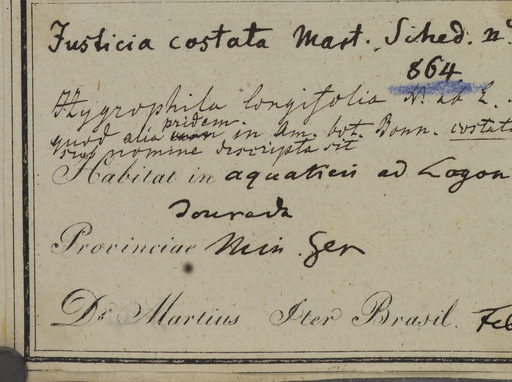 Justicia costata Mart. Sched. n°
864
Hygrophila longifolia N. ab E.
pridem
quod alia in Am. bot. Bonn. costata
nomine descripta sit
Habitat in aquaticis ad Lagoa
Dourada
Provinciae Min. Ger
Dr. Martius Iter Brasil. Feb